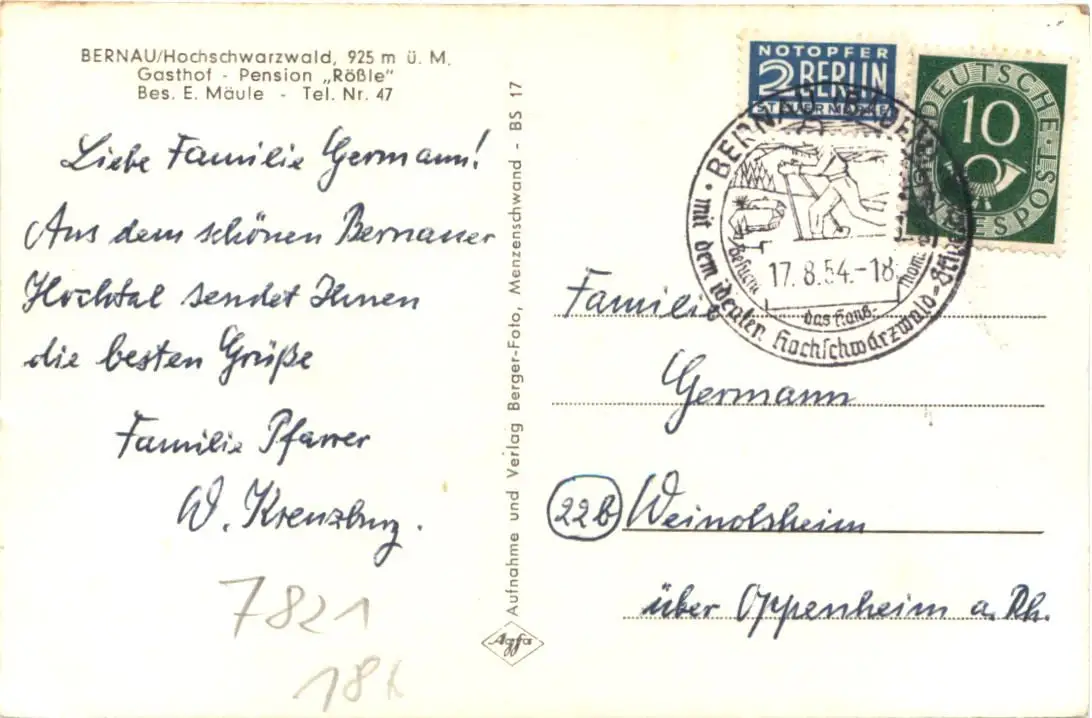 BERNAU/Hochschwarzwald, 925 m ü. M.
Gasthof - Pension „Rößle"
Bes. E. Mäule - Tel. Nr. 47
Liebe Familie Germann!
Aus dem schönen Bernauer
Hochtal sendet Ihnen
die besten Grüße
Familie Pfarrer
W. Kreuzburg.
7821
18
Aufnahme und Verlag Berger-Foto, Menzenschwand - BS 17
Agfa
NOTOPFER
2 BERLIN
STEUERMARKE
DEUTSCHE
BUNDESPOST
10
BERNAU (BADEN)
mit dem idealen Hochschwarzwald-
Besucht
das Hans-
Thoma-
17.8.54.-18
Familie
Germann
22b Weinolsheim
über Oppenheim a. Rh.